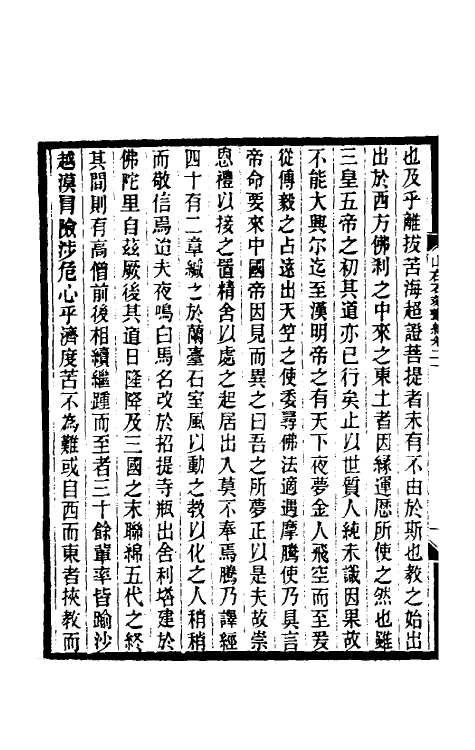 也及乎離拔苦海超證菩提者未有不由於斯也教之始出
出於西方佛刹之中來之東土者因緣運歷所使之然也雖
三皇五帝之初其道亦已行矣止以世質人純未識因果故
不能大興尔迄至漢明帝之有天下夜夢金人飛空而至爰
從傅毅之占遠出天竺之使委尋佛法適遇摩騰使乃具言
帝命要來中國帝因見而異之曰吾之所夢正以是夫故崇
恩禮以接之置精舍以處之起居出入莫不奉焉騰乃譯經
四十有二章緘之於蘭臺石室風以動之教以化之人稍稍
而敬信焉迨夫夜鳴白馬名改於招提寺瓶出舍利塔建於
佛陀里自茲厥後其道日隆降及三國之末聯綿五代之終
其間則有高僧前後相續繼踵而至者三十餘輩率皆踰沙
越漠冒險涉危心乎濟度苦不為難或自西而東者挾教而
山右石刻叢編卷二一